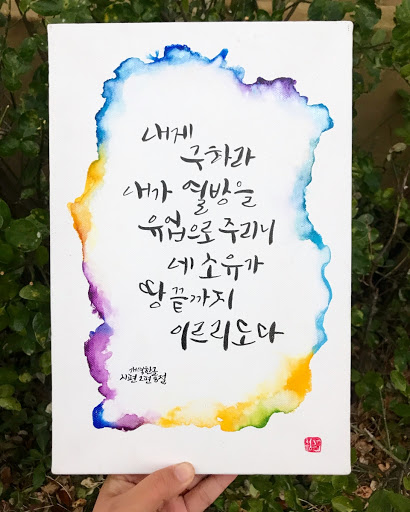 내게
구하라
내가 열방을
유업으로 주리니
네 소유가
땅 끝까지
이르리도다
개역한글
시편 2편 8절